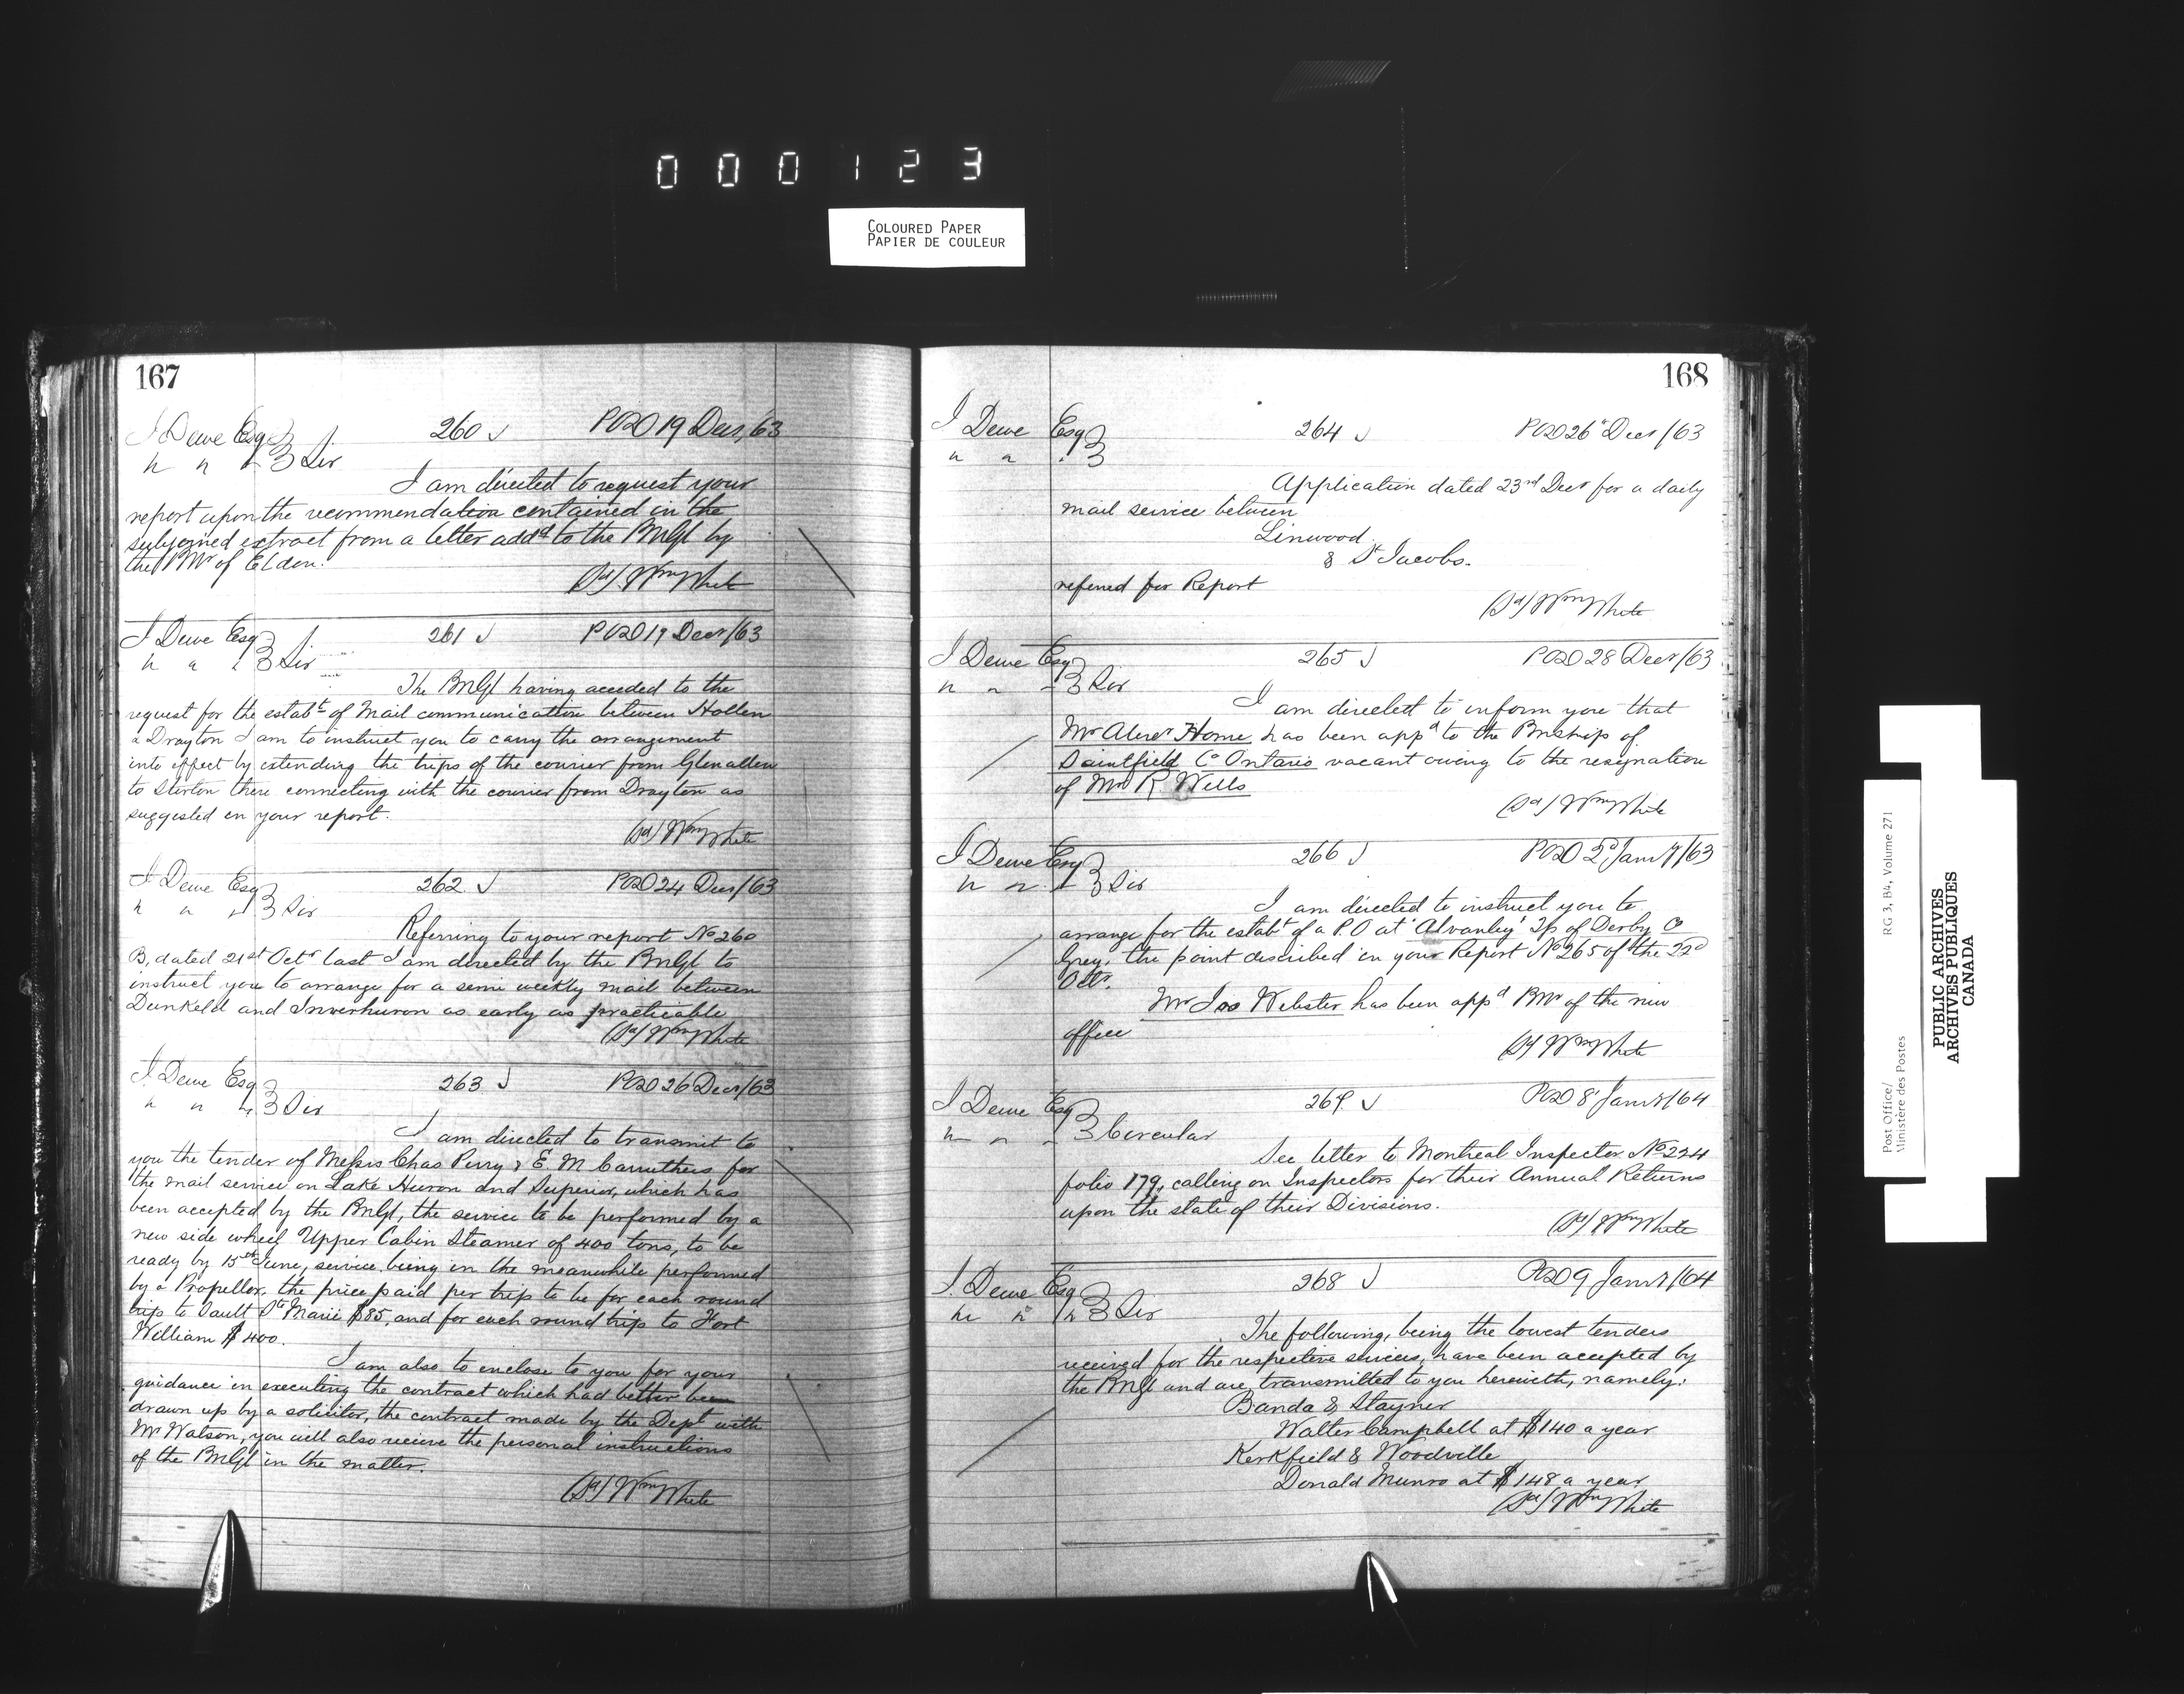 000123
COLOURED PAPER
PAPIER DE COULEUR
167
J Dewe Esq 260 POD 19 Decr/63
" " " Sir
I am directed to request your
report upon the recommendation contained in the
subjoined extract from a letter addd to the PMGl by
the PMr of Eldon.
(Sd) Wm White
J Dewe Esq 261 POD 19 Decr/63
" " " Sir
The PMGl having acceded to the
request for the estabt of Mail communication between Hollen
& Drayton I am to instruct you to carry the arrangement
into effect by extending the trips of the courier from Glenallen
to Stirton there connecting with the courier from Drayton as
suggested in your report.
(Sd) Wm White
J Dewe Esq 262 POD 24 Decr/63
" " " Sir
Referring to your report No 260
B, dated 21st Octr last I am directed by the PMGl to
instruct you to arrange for a semi weekly mail between
Dunkeld and Inverhuron as early as practicable
(Sd) Wm White
J Dewe Esq 263 POD 26 Decr/63
" " " Sir
I am directed to transmit to
you the tender of Messrs Chas Perry & E. M Carruthers for
the mail service on Lake Huron and Superior, which has
been accepted by the PMGl, the service to be performed by a
new side wheel Upper Cabin Steamer of 400 tons, to be
ready by 15th June, service being in the meanwhile performed
by a Propellor, the price paid per trip to be for each round
trip to Sault Ste Marie $85, and for each round trip to Fort
William $400.
I am also to enclose to you for your
guidance in executing the contract which had better been
drawn up by a solicitor, the contract made by the Dept with
Mr Watson, you will also receive the personal instructions
of the PMGl in the matter.
(Sd) Wm White
168
J Dewe Esq 264 POD 26" Decr/63
" " "
Application dated 23rd Decr for a daily
mail service between
Linwood
& St Jacobs.
referred for Report
(Sd) Wm White
J Dewe Esq 265 POD 28 Decr/63
" " " Sir
I am directed to inform you that
Mr Alexr Horne has been appd to the PMship of
Saintfield Co Ontario vacant owing to the resignation
of Mr R Wells
(Sd) Wm White
J Dewe Esq 266 POD 2d Jany/63
" " " Sir
I am directed to instruct you to
arrange for the estabt of a P.O at 'Alvanley' Tp of Derby Co
Grey, the point described in your Report No 265 of the 22d
Octr.
Mr Jas Webster has been appd PMr of the new
office
(Sd) Wm White
J Dewe Esq 267 POD 8 Jany/64
" " " Circular
See letter to Montreal Inspector No 224
folio 179, calling on Inspectors for their Annual Returns
upon the state of their Divisions.
(Sd) Wm White
J Dewe Esq 268 POD 9 Jany/64
" " " Sir
The following, being the lowest tenders
received for the respective services, have been accepted by
the PMGl and are transmitted to you herewith, namely:
Banda & Stayner
Walter Campbell at $140 a year
Kerkfield & Woodville
Donald Munro at $148 a year
(Sd) Wm White
Post Office/ RG 3, B4, Volume 271
Ministère des Postes
PUBLIC ARCHIVES
ARCHIVES PUBLIQUES
CANADA